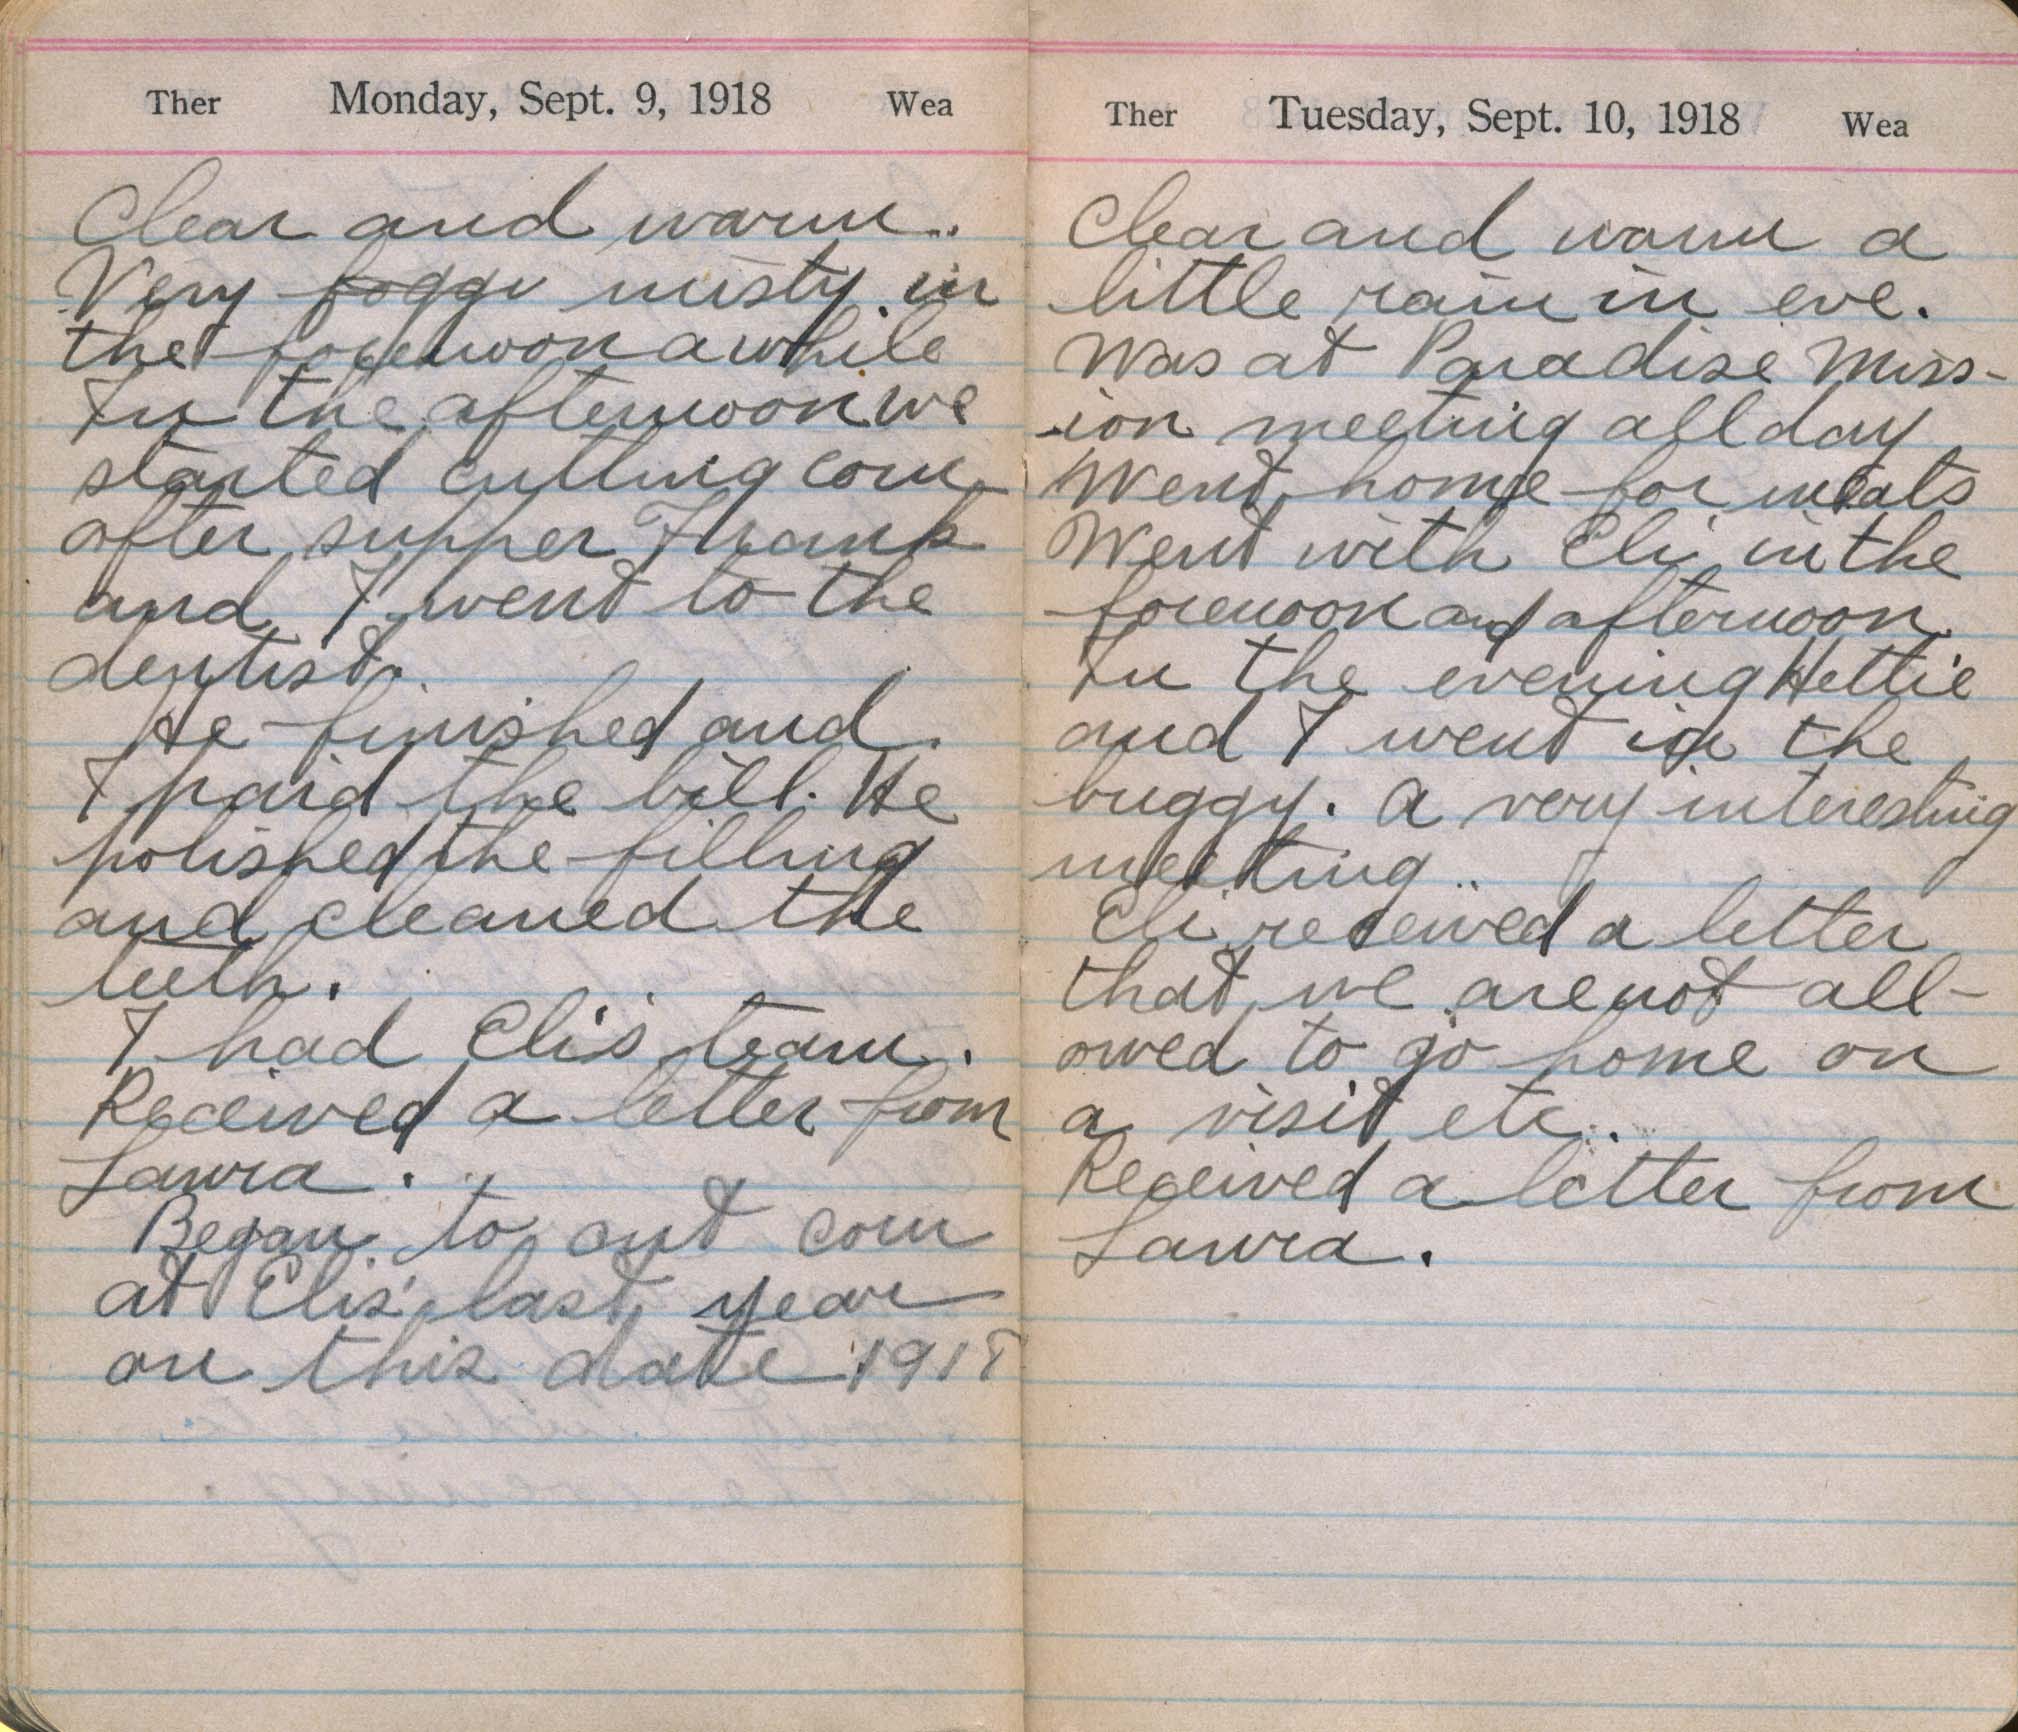 Ther Monday, Sept. 9, 1918 Wea
Clear and warm..
Very foggy misty in
the forenoon awhile
In the afternoon we
started cutting corn
after supper Frank
and I went to the
dentist.
He finished and
I paid the bill. He
polished the filling
and cleaned the
teeth.
I had Eli's team.
Received a letter from
Laura.
Began to cut corn
at Elis' last year
on this date 1918
Ther Tuesday, Sept. 10, 1918 Wea
Clear and warm a
little rain in eve.
Was at Paradise Miss-
ion meeting all day
Went home for meals
Went with Eli in the
forenoon and afternoon
In the evening Hettie
and I went in the
buggy. A very interesting
meeting..
Eli received a letter
that we are not all-
owed to go home on
a visit etc.
Received a letter from
Laura.